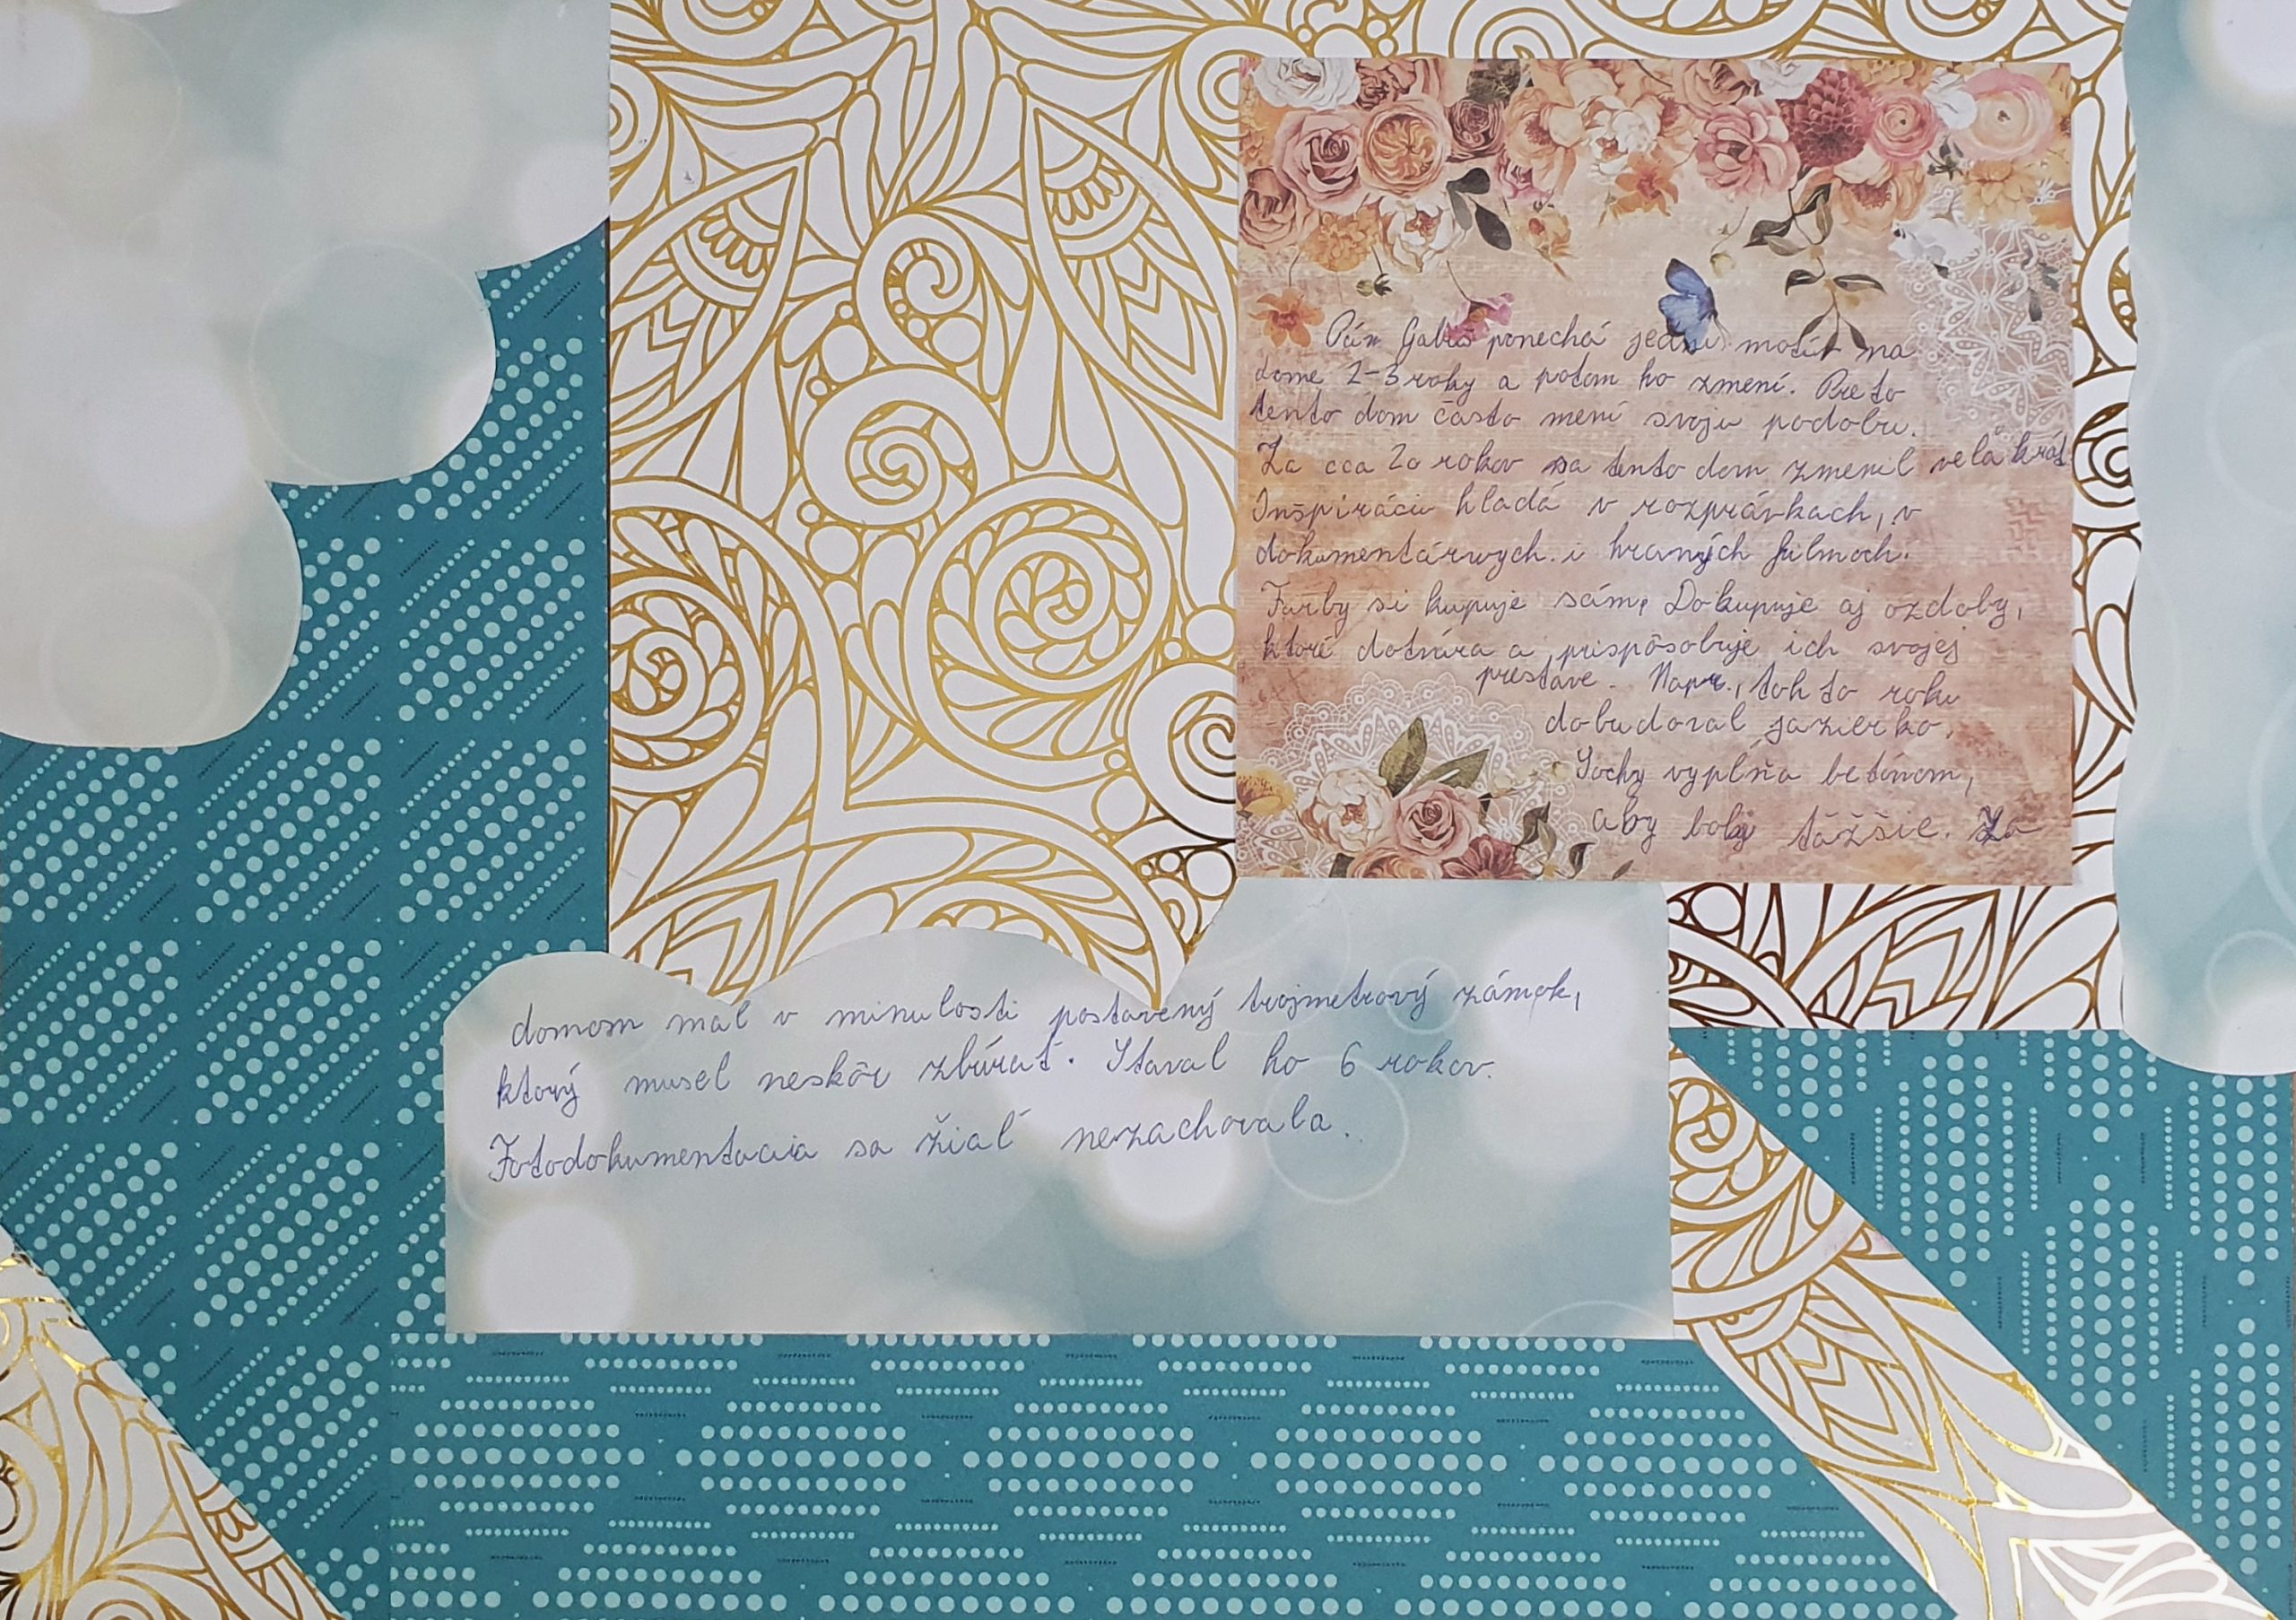 Pán Gabiš ponechá jeden motív na
dome 2-3 roky a potom ho zmení. Preto
tento dom často mení svoju podobu.
Za cca 20 rokov sa tento dom zmenil veľa krát
Inšpiráciu hladá v rozprávkach, v
dokumentárnych i hraných filmoch.
Farby si kupuje sám, Dokupuje aj ozdoby,
ktoré dotvára a prispôsobuje ich svojej
prestave. Napr., toh to roku
dobudoval jazierko.
Sochy vyplňa betónom,
aby boly tăžšie. Za
domom mal v minulosti postavený trojmetrový zámok,
ktorý musel neskôr zbúrať. Staval ho 6 rokov.
Fotodokumentacia sa žiaľ nezachovala.